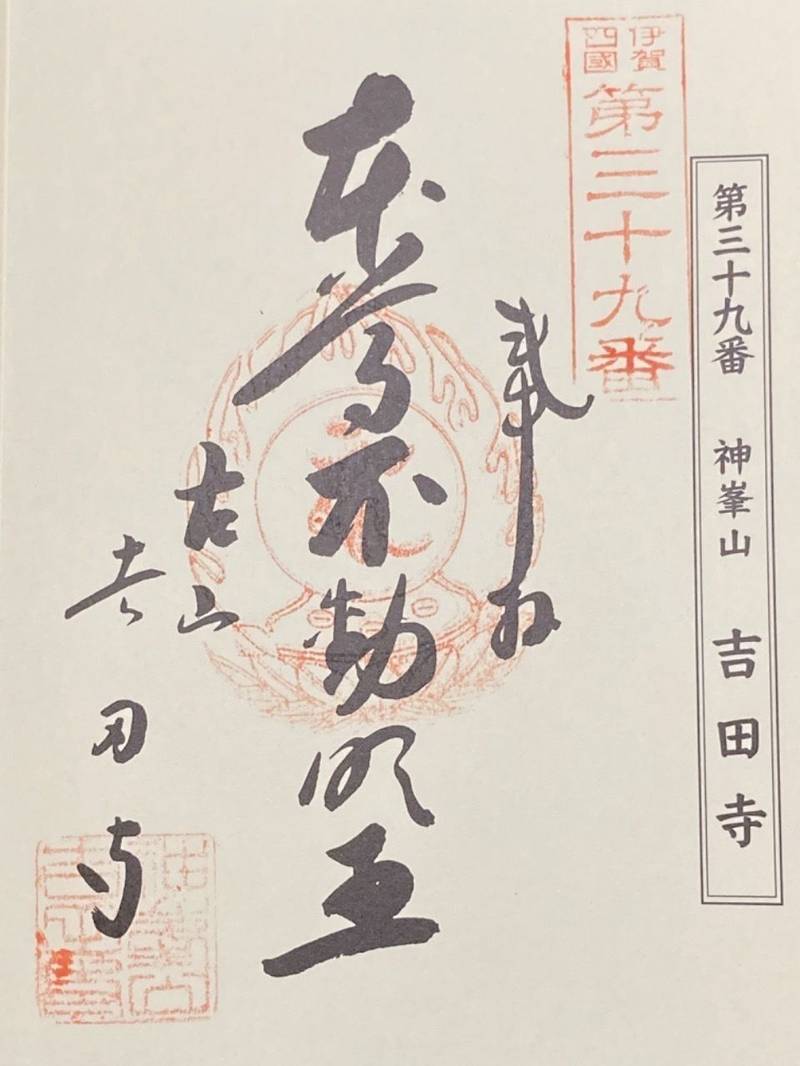 第三十九番 神峯山 吉田寺
伊賀
四國
第三十九番
奉拝
本尊不動明王
古山
吉田寺